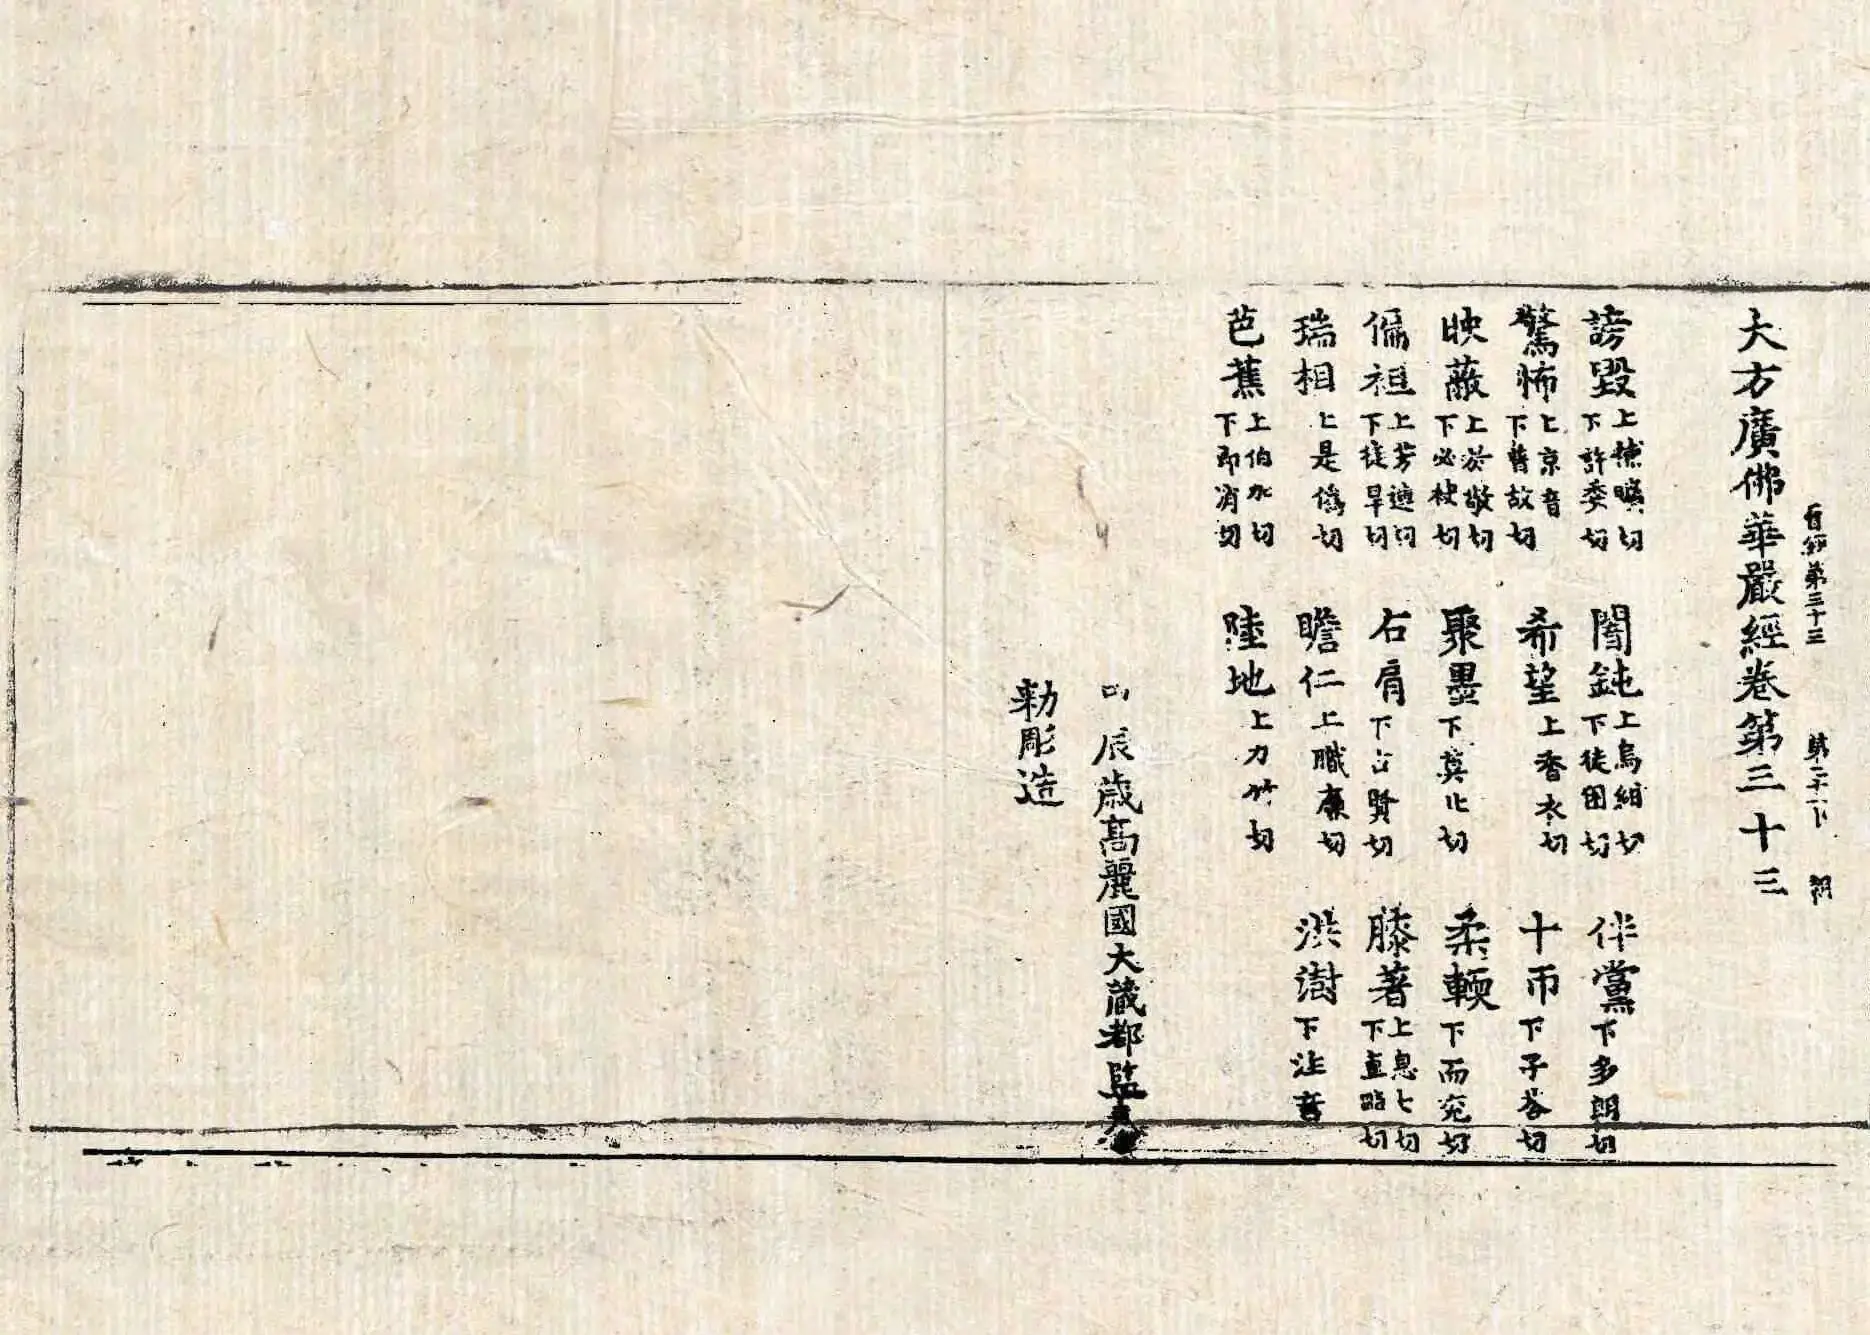 大方廣佛華嚴經卷第三十三
謗毀上補曠切下許委切 闇鈍上烏紺切下徒困切 伴黨下多朗切
驚怖上京音下普故切 希望上香衣切 十帀下子荅切
映蔽上於敬切下必袂切 聚墨下莫北切 柔輭下而兖切
偏袒上芳連切下徒旱切 右肩下古賢切 膝著上息七切下直略切
瑞相上是僞切 瞻仁上職廉切 洪澍下注音
芭蕉上伯加切下即消切 陸地上力竹切
辰歲高麗國大藏都監奉
勅彫造